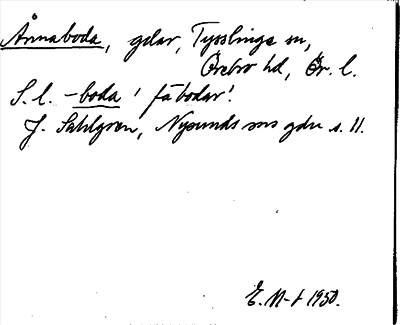 Ånnaboda, gdar, Tysslinge sn,
Örebro hd, Ör. l.
S. l. -boda 'fäbodar'.
J. Sahlgren, Nysunds sns gdn s. 11.
E. M-t 1950.